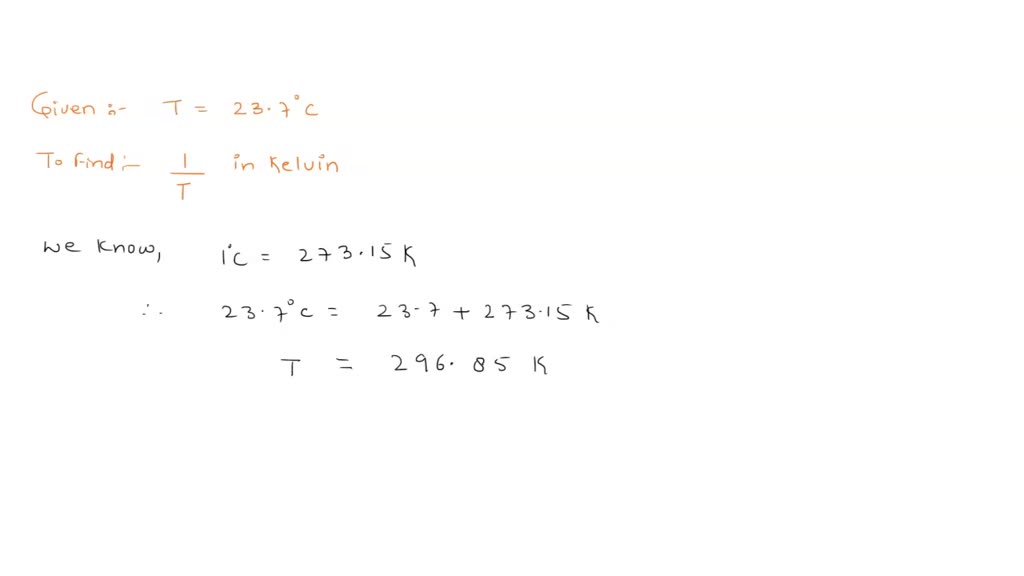 Given :- T = 23.7°C
To find :- 1/T in Kelvin
we know, 1°C = 273.15 K
∴ 23.7°C = 23.7 + 273.15 K
T = 296.85 K